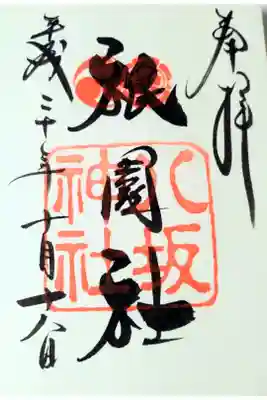 奉拝
祇園社
八坂
神社
平成三十年十月十八日